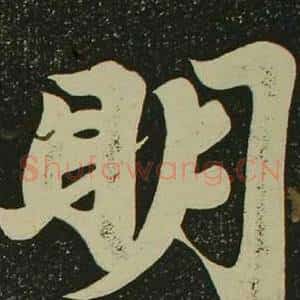 明
Shufawang.CN